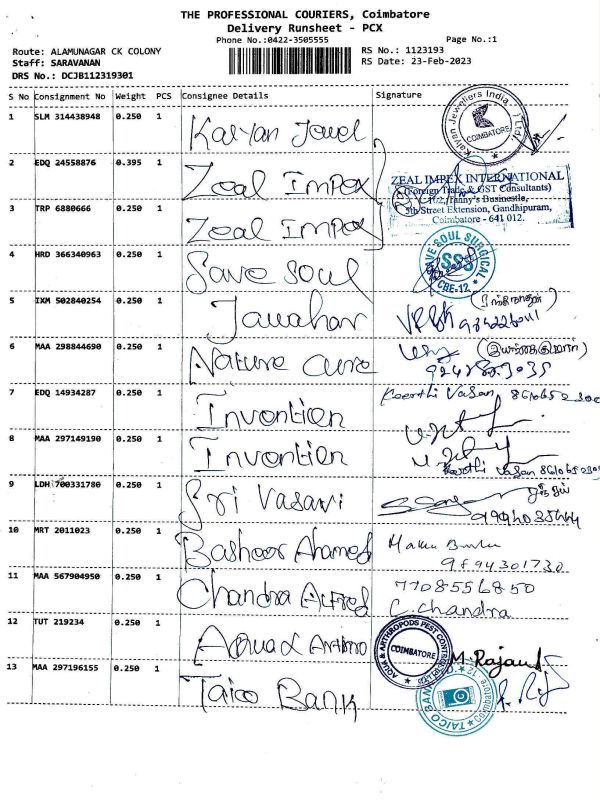 THE PROFESSIONAL COURIERS, Coimbatore
Delivery Runsheet - PCX
Phone No.:0422-3505555 Page No.:1
Route: ALAMUNAGAR CK COLONY RS No.: 1123193
Staff: SARAVANAN RS Date: 23-Feb-2023
DRS No.: DCJB112319301
S No Consignment No Weight PCS Consignee Details Signature
1 SLM 314438948 0.250 1 Kalyan Jewel
Kalyan Jewellers India Ltd. COIMBATORE
2 EDQ 24558876 0.395 1 Zeal Impex
ZEAL IMPEX INTERNATIONAL
(Foreign Trade & GST Consultants)
3 TRP 6880666 0.250 1 Zeal Impex
5th Street Extension, Gandhipuram,
Coimbatore - 641 012.
4 HRD 366340963 0.250 1 Save Soul
SAVE SOUL SURGICAL SSS CBE-12
5 IXM 502840254 0.250 1 Jawahar
6 MAA 298844690 0.250 1 Nature cure
7 EDQ 14934287 0.250 1 Invention Keerthi Vasan
8 MAA 297149190 0.250 1 Invention
Keerthi Vasan
9 LDH 700331780 0.250 1 Sri Vasavi
10 MRT 2011023 0.250 1 Basheer Ahamed
9894301730
11 MAA 567904950 0.250 1 Chandra Alfred 7708556850
C. Chandra
12 TUT 219234 0.250 1
AQUA & ARTHAOPODS PEST CONTROL COIMBATORE
M. Rajan
13 MAA 297196155 0.250 1 Taico Bank
TAICO BANK